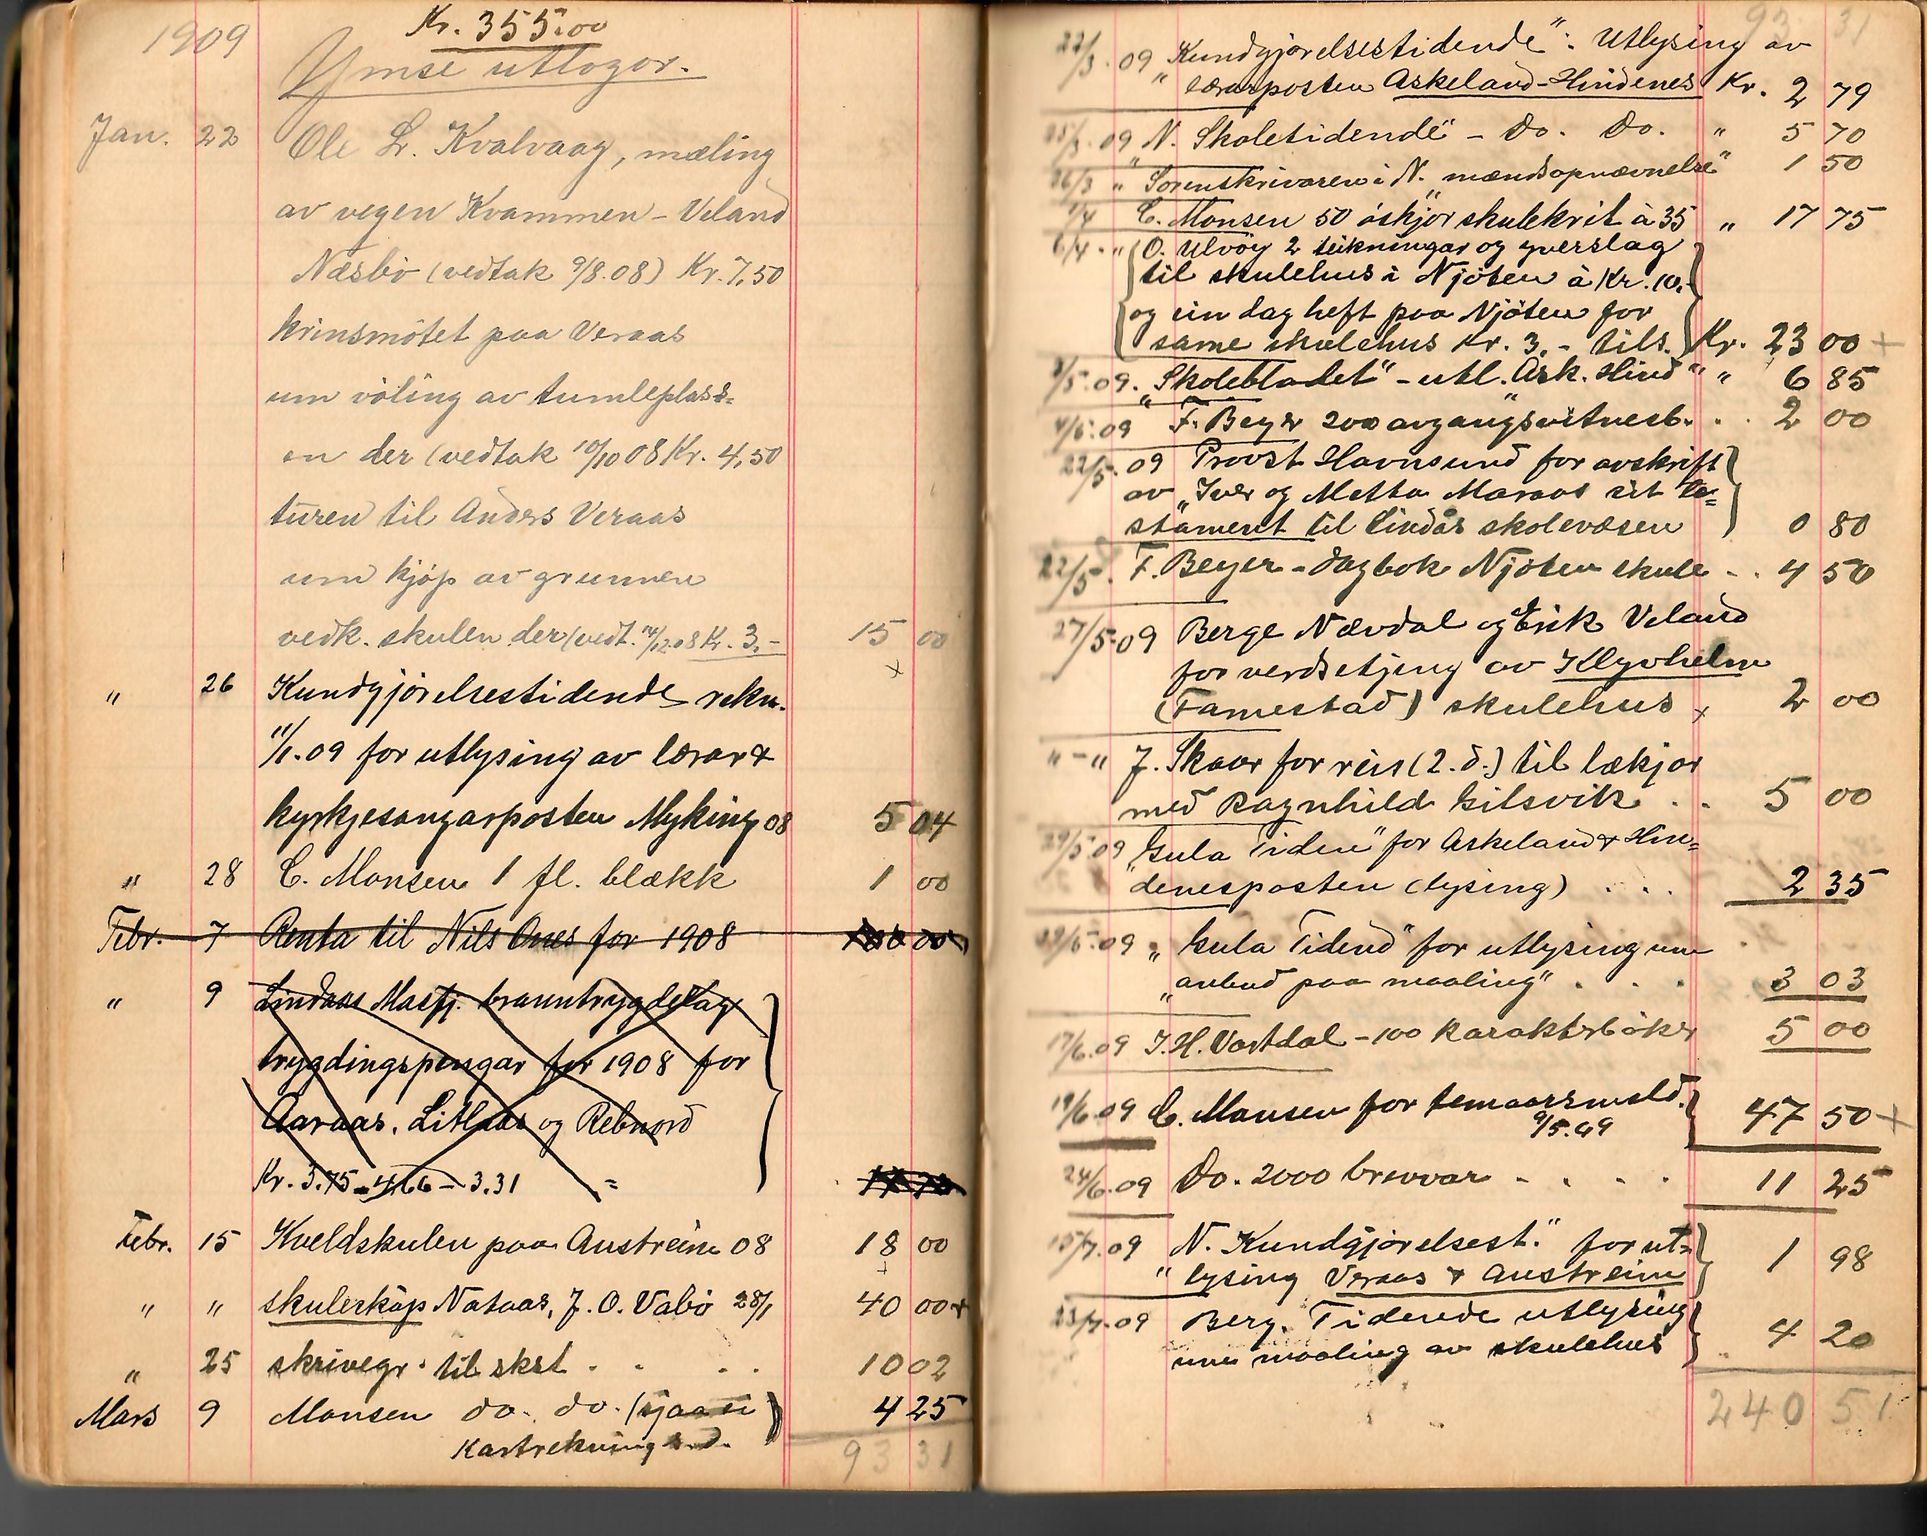 1909
Kr. 355.00
Ymse utlogor.
Jan. 22 Ole L. Kvalvaag, mæling
av vegen Kvammen - Veland
Næsbö (vedtak 9/8.08) Kr. 7,50
krinsmötet paa Veraas
um völing av tumleplass-
en der (vedtak 10/10 08 Kr. 4,50
turen til Anders Veraas
um kjöp av grunnen
vedk. skulen der (vedt. 14/12.08 Kr. 3,- 15 00
" 26 Kundgjörelsestidende rekn.
11/1.09 for utlysing av lærar &
kyrkjesangarposten Myking 08 5 04
" 28 C. Monsen 1 fl. blækk 1 00
Febr. 7 Renta til Nils Ones for 1908
" 9 Lindaas Masfj. branntrygdelag
trygdingspengar for 1908 for
Aaraas, Litlaas og Rebnord
Kr. 3.75 - 4,66 - 3.31 =
Febr. 15 Kveldskulen paa Austreim 08 18 00
" " skuleskåp Nataas, J. O. Vabö 28/1 40 00 +
" 25 skrivegr. til skst . . . . 10 02
Mars 9 Monsen do. do. 4 25
93 31
93 31
22/3.09 "Kundgjörelsestidende": Utlysing av
lærarposten Askeland-Hindenes Kr. 2 79
09 "N. Skoletidende" - Do. Do. " 5 70
26/3 " Sorenskrivaren i N. mændsopnævnelse " 1 50
1/4 C. Monsen 50 öskjor skulekrit à 35 " 17 75
6/4 - " O. Ulvöy 2 teikningar og yverslag
til skulehus i Njöten à Kr. 10,-
og ein dag heft paa Njöten for
same skulehus Kr. 3,- tils. Kr. 23 00 +
3/5.09. "Skolebladet" - utl. Ask. Hind " " 6 85
4/5.09 F. Beyer 200 avgangsvitnesb. . . 2 00
22/5. 09 Provst Havnsund for avskrift
av "Iver og Metta Maraas sit te-
stament til Lindås skolevæsen 0 80
22/5. F. Beyer - dagbok Njöten skule - . 4 50
27/5.09 Berge Nævdal og Erik Veland
for verdsetjing av Klyvheim
(Famestad) skulehus 2 00
" - " J. Skaar for reis (2. d.) til lækjar
med Ragnhild Gilsvik . . 5 00
29/5.09 "Gula Tidend" for Askeland & Hin-
denesposten (lysing) . . . 2 35
29/5.09 "Gula Tidend" for utlysing um
"anbud paa maaling" . . . 3 03
17/6.09 J. H. Vastdal - 100 karakterböker 5 00
19/6.09 C. Monsen for temaarsmeld.
9/5.09 47 50 +
24/6.09 Do. 2000 brevvar - . . . 11 25
15/7.09 "N. Kundgjörelsest." for ut-
lysing Veraas & Austreim 1 98
23/7.09 Berg. Tidende utlysing
um maaling av skulehus 4 20
240 51